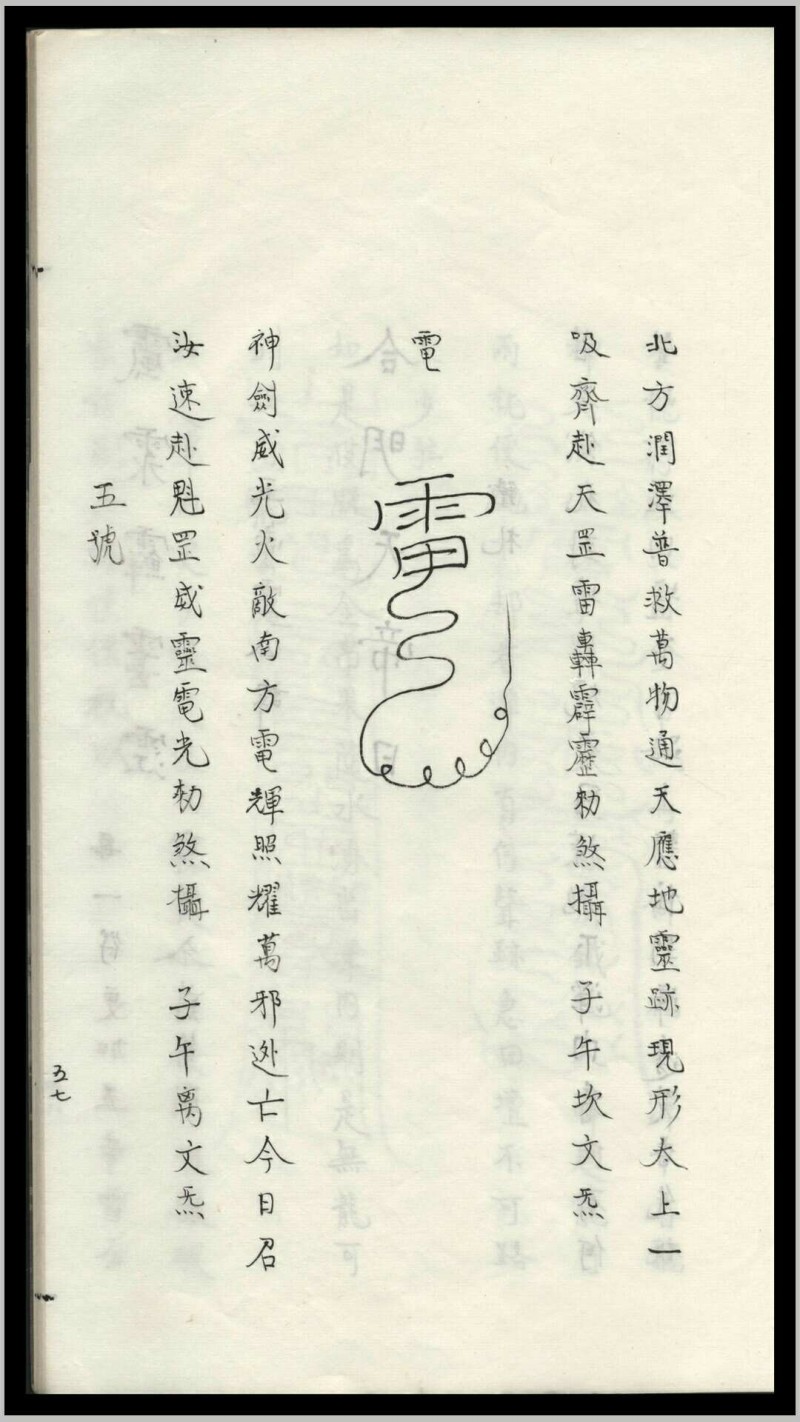 北方潤澤普救萬物通天應地靈跡現形太上一
吸齊赴天罡雷轟霹靂勑煞攝 子午坎文炁
電
神劍威光火敵南方電輝照耀萬邪迯亡今日召
汝速赴魁罡威靈電光勑煞攝 子午离文炁
五號
五七